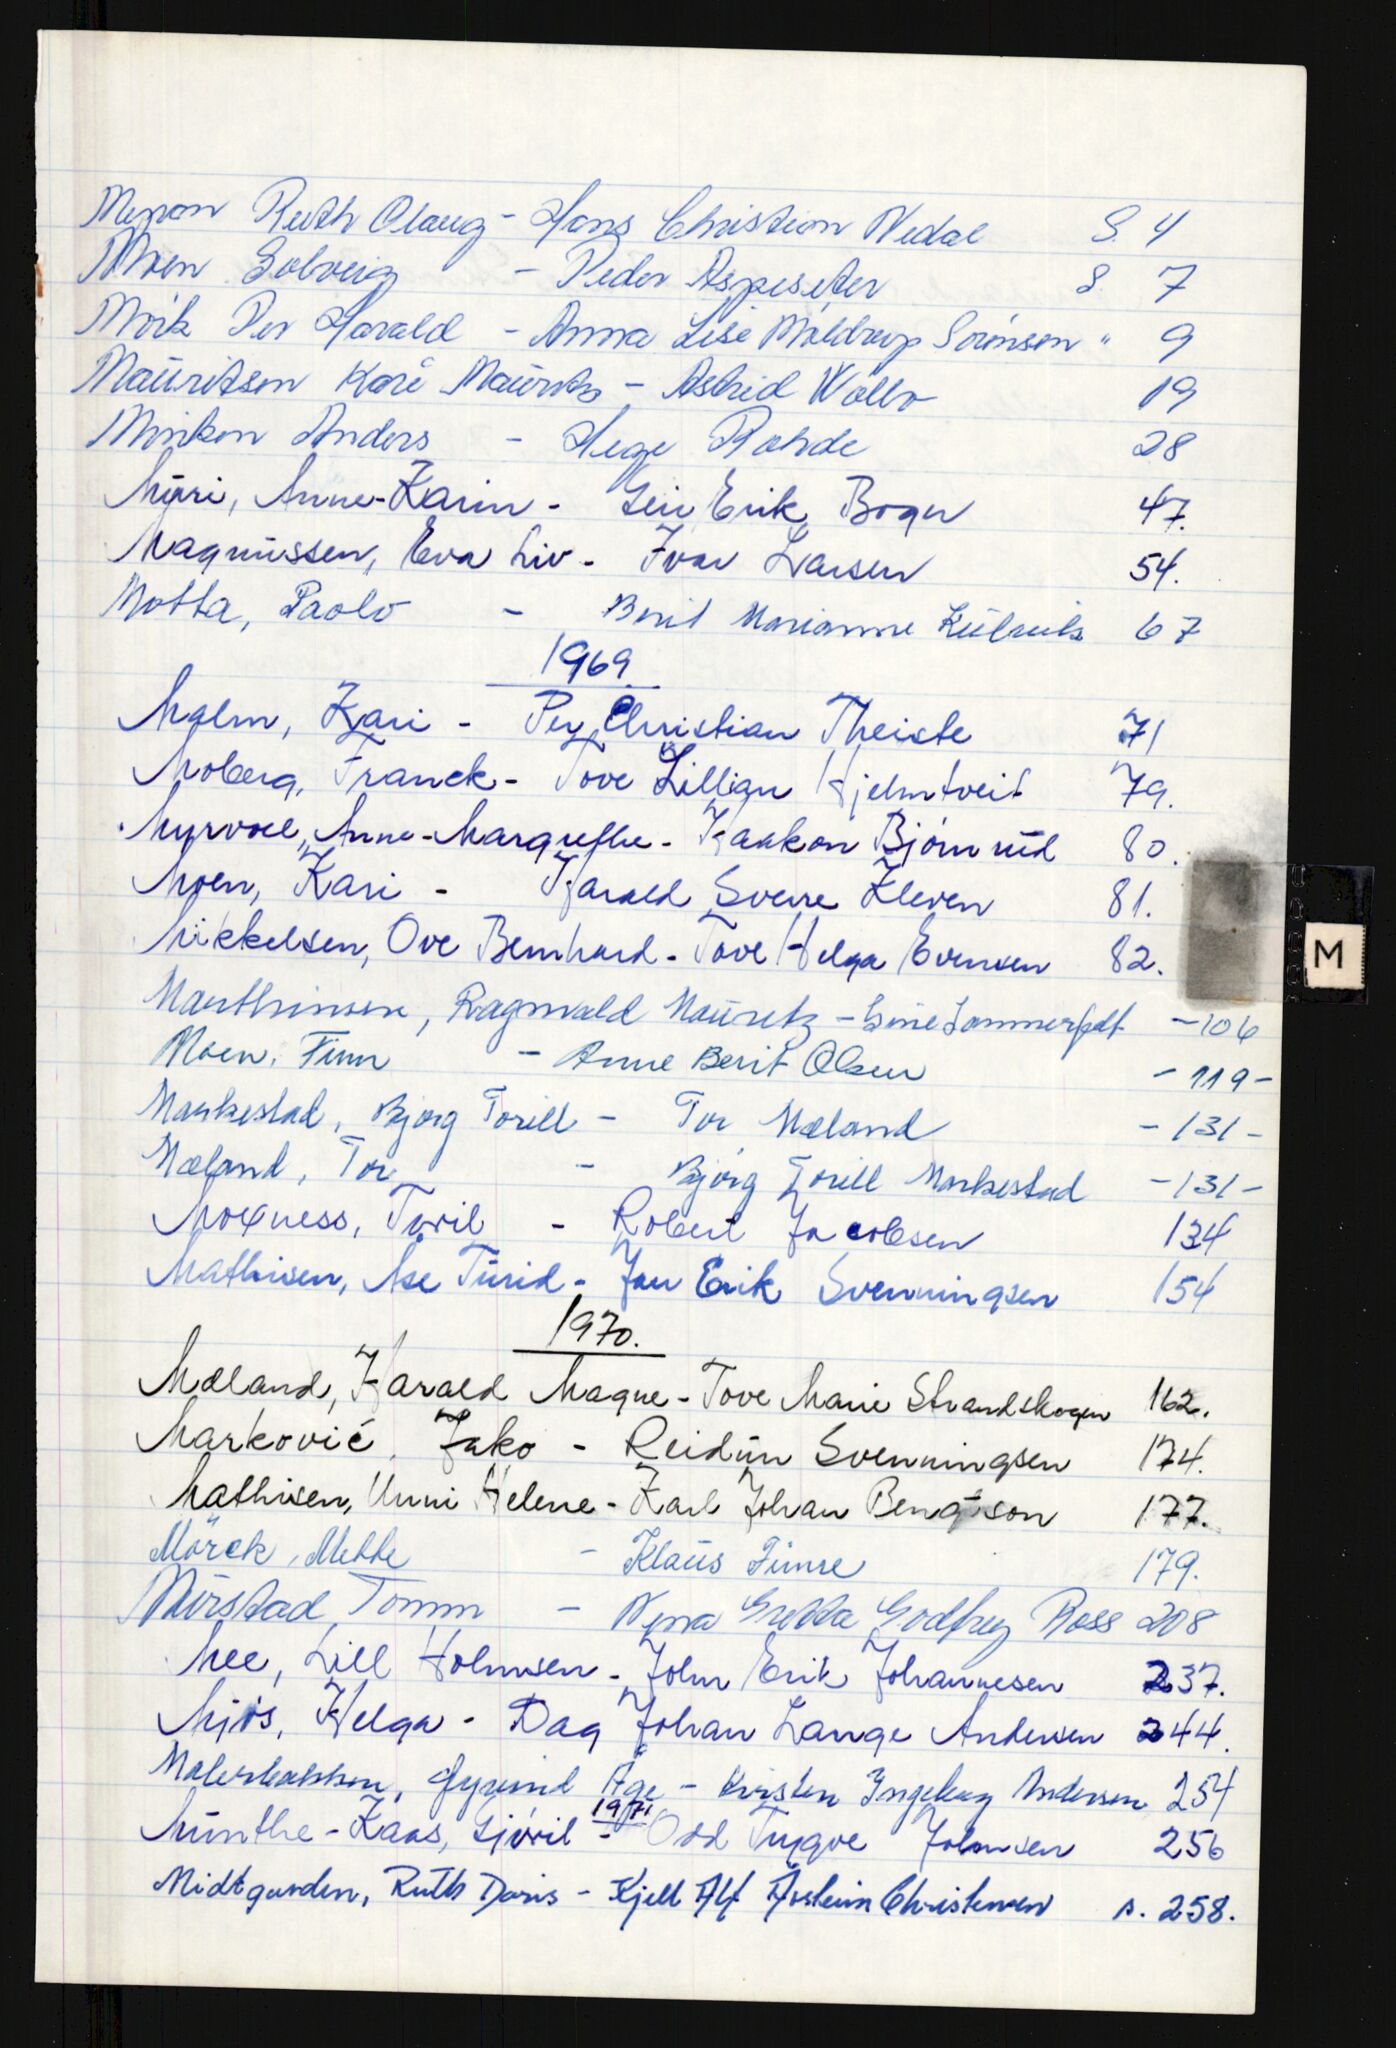 Ruth Olaug - Hans Christian Wedal S. 4
Moen Solveig - Peder Aspeseter S 7
Mörk Per Harald - Anna Lise Möldrup Sörensen " 9
Mauritsen Kåre Mauritz - Astrid Wollo 19
Anders - Hege Rohde 28
Müri, Anne-Karin - Leir Erik Bogn 47.
Magnussen, Eva Liv - Ivar Larsen 54.
Motta, Paolo - Berit Marianne 67
1969
Malm, Kari - Per Christian Theiste 71
Moberg, Franck - Tove Lillian Hjelmtveit 79.
Myrvoll, Anne-Margrethe - Haakon Bjørnrud 80.
Moen, Kari - Harald Sverre Kleven 81.
Mikkelsen, Ove Bernhard - Tove Helga Evensen 82.
M
Marthinsen, Ragnvald Mauritz - Sommerfelt - 106
Moen, Finn - Anne Berit Olsen - 119 -
Markestad, Bjørg Torill - Tor Mæland - 131 -
Mæland, Tor - Bjørg Torill Markestad - 131 -
Moxness, Turil - Robert Jacobsen 134
Mathisen, Åse Turid - Jan Erik Svenningsen 154
1970.
Mæland, Harald Magne - Tove Marie Strandskogen 162.
Marković, Jako - Reidun Svenningsen 174.
Mathisen, Unni Helene - Karl Johan Bengtson 177.
Mörck, Mette - Klaus Funse 179.
Mürstad, Tomm - Nyna Gretta Godfrey Ross 208
Mee, Lill Holmsen - John Erik Johannesen 237.
Mjøs, Helga - Dag Johan Lange Andersen 244.
Malerbakken, Øyvind Åge - Kirsten Ingeborg Andersen 254
1971
Munthe-Kaas, Sjøril - Odd Trygve Johnsen 256
Midtgarden, Ruth Doris - Kjell Alf Øistein Christensen s. 258.